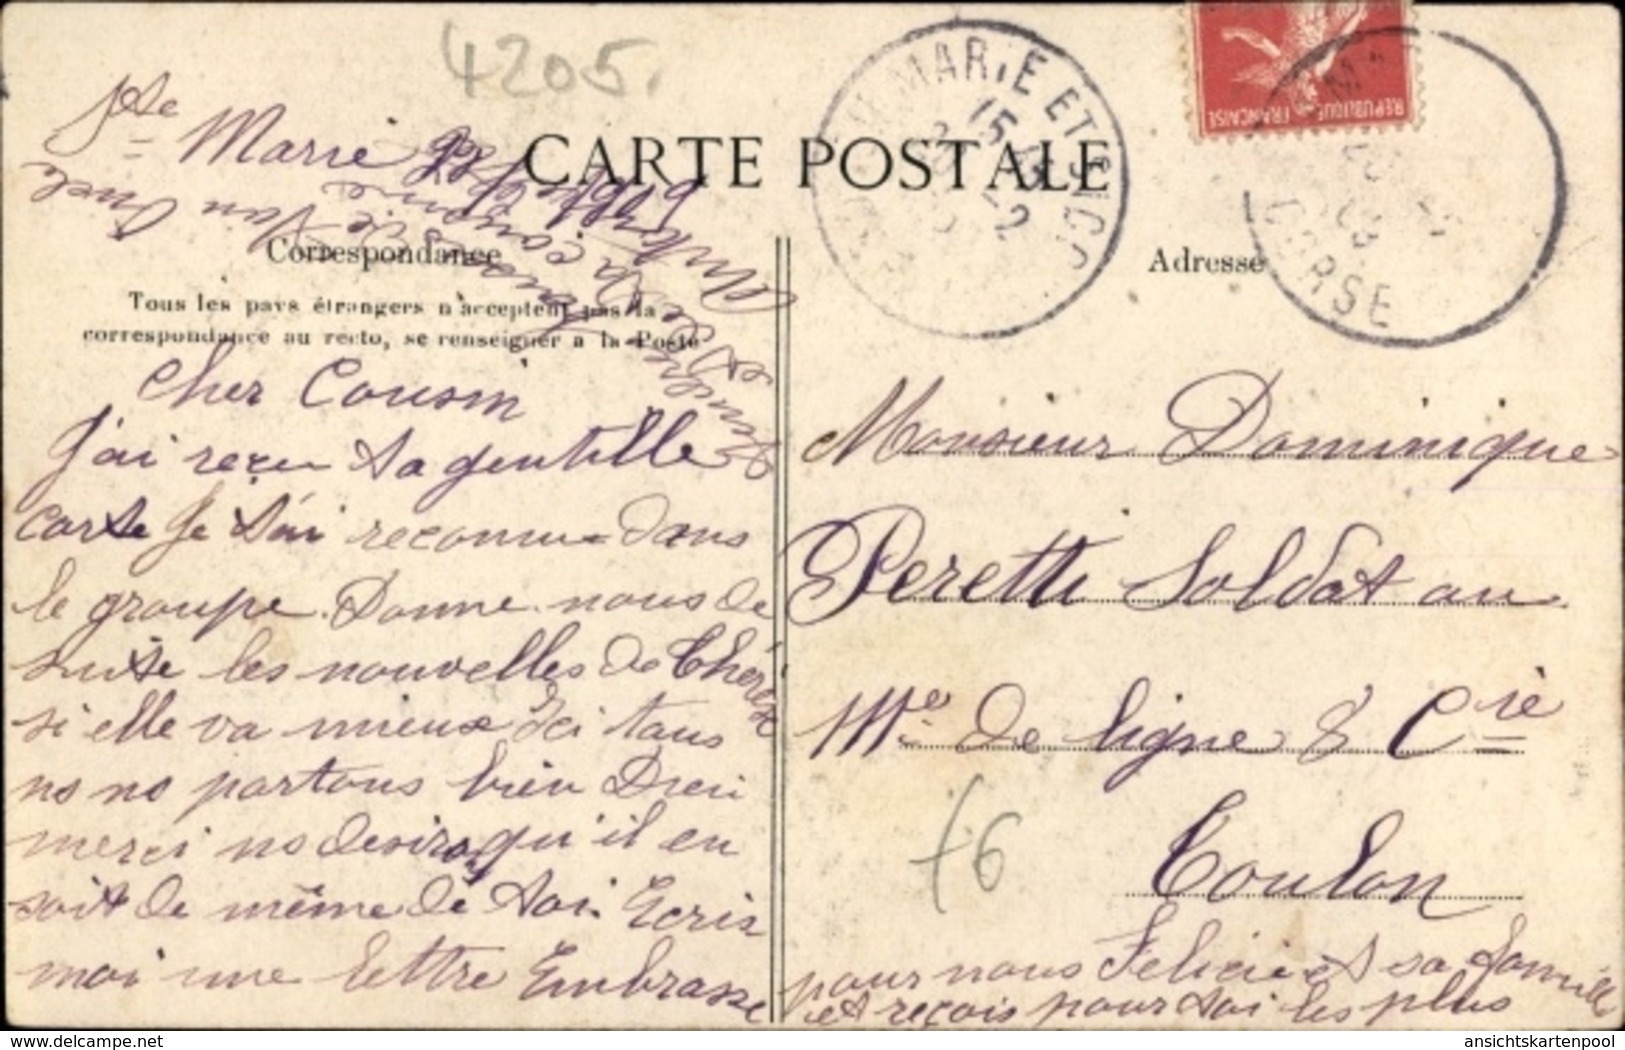 4205.
Ste Marie
CARTE POSTALE
Correspondance
Tous les pays étrangers n'acceptent pas la
correspondance au recto, se renseigner à la Poste
Cher Cousin
J'ai reçu ta gentille
carte Je t'ai reconnu dans
le groupe. Donne nous de
suite les nouvelles de Thérèse
si elle va mieux Ici tous
ns ns portons bien Dieu
merci ns desirons qu'il en
soit de même de toi. Ecris
moi une lettre Embrasse
pour nous Felicie et sa famille
et reçois pour toi les plus
MARIE ET SICC
15
CORSE
REPUBLIQUE FRANÇAISE
Adresse
Monsieur Dominique
Peretti Soldat au
111e de ligne 8 Cie
Toulon
+6
delcampe.net
ansichtskartenpool